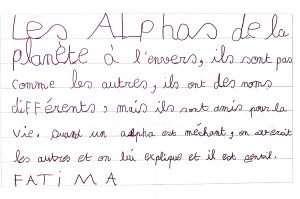 Les ALphas de la
planète à l'envers, ils sont pas
comme les autres, ils ont des noms
différents, mais ils sont amis pour la
vie. Quand un alpha est méchant, on
les autres et on lui explique et il est
FATIMA